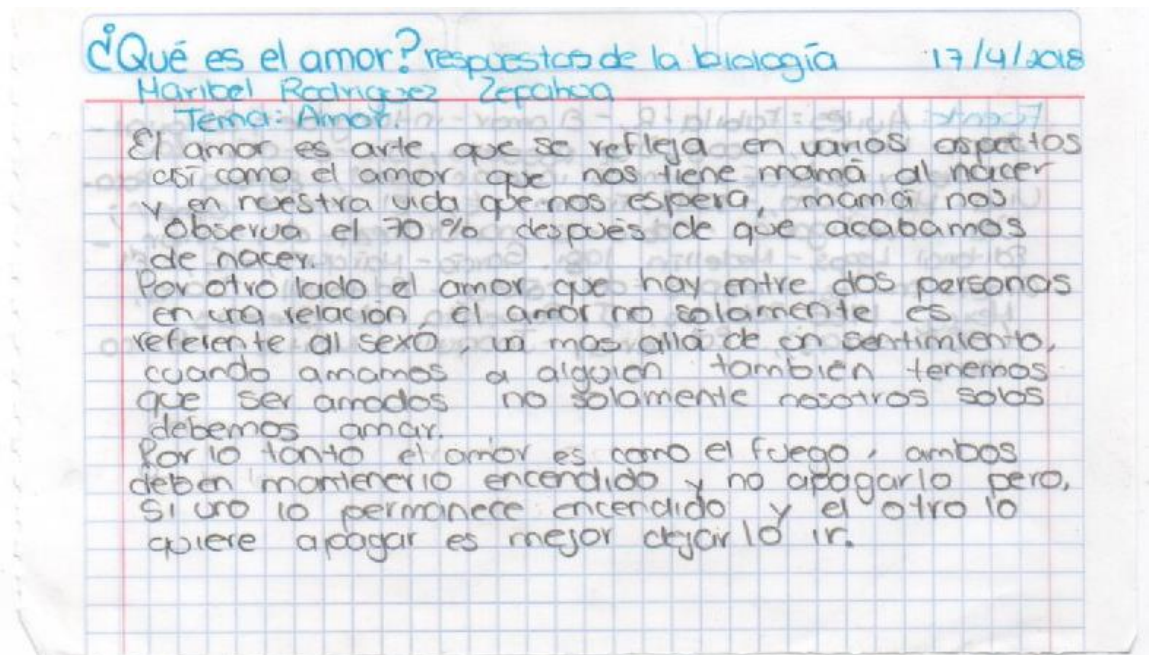 ¿Qué es el amor? respuestas de la biología 17/4/2018
Maribel Rodriguez Zepahua
Tema: Amor.
El amor es arte que se refleja en varios aspectos
así como el amor que nos tiene mamá al nacer
y en nuestra vida que nos espera, mamá nos
Observa el 70 % después de que acabamos
de nacer.
Por otro lado el amor que hay entre dos personas
en una relación, el amor no solamente es
referente al sexo, va mas allá de un sentimiento,
cuando amamos a alguien también tenemos
que ser amados no solamente nosotros solos
debemos amar.
Por lo tanto el amor es como el fuego, ambos
deben mantenerlo encendido y no apagarlo pero,
si uno lo permanece encendido y el otro lo
quiere apagar es mejor dejarlo ir.